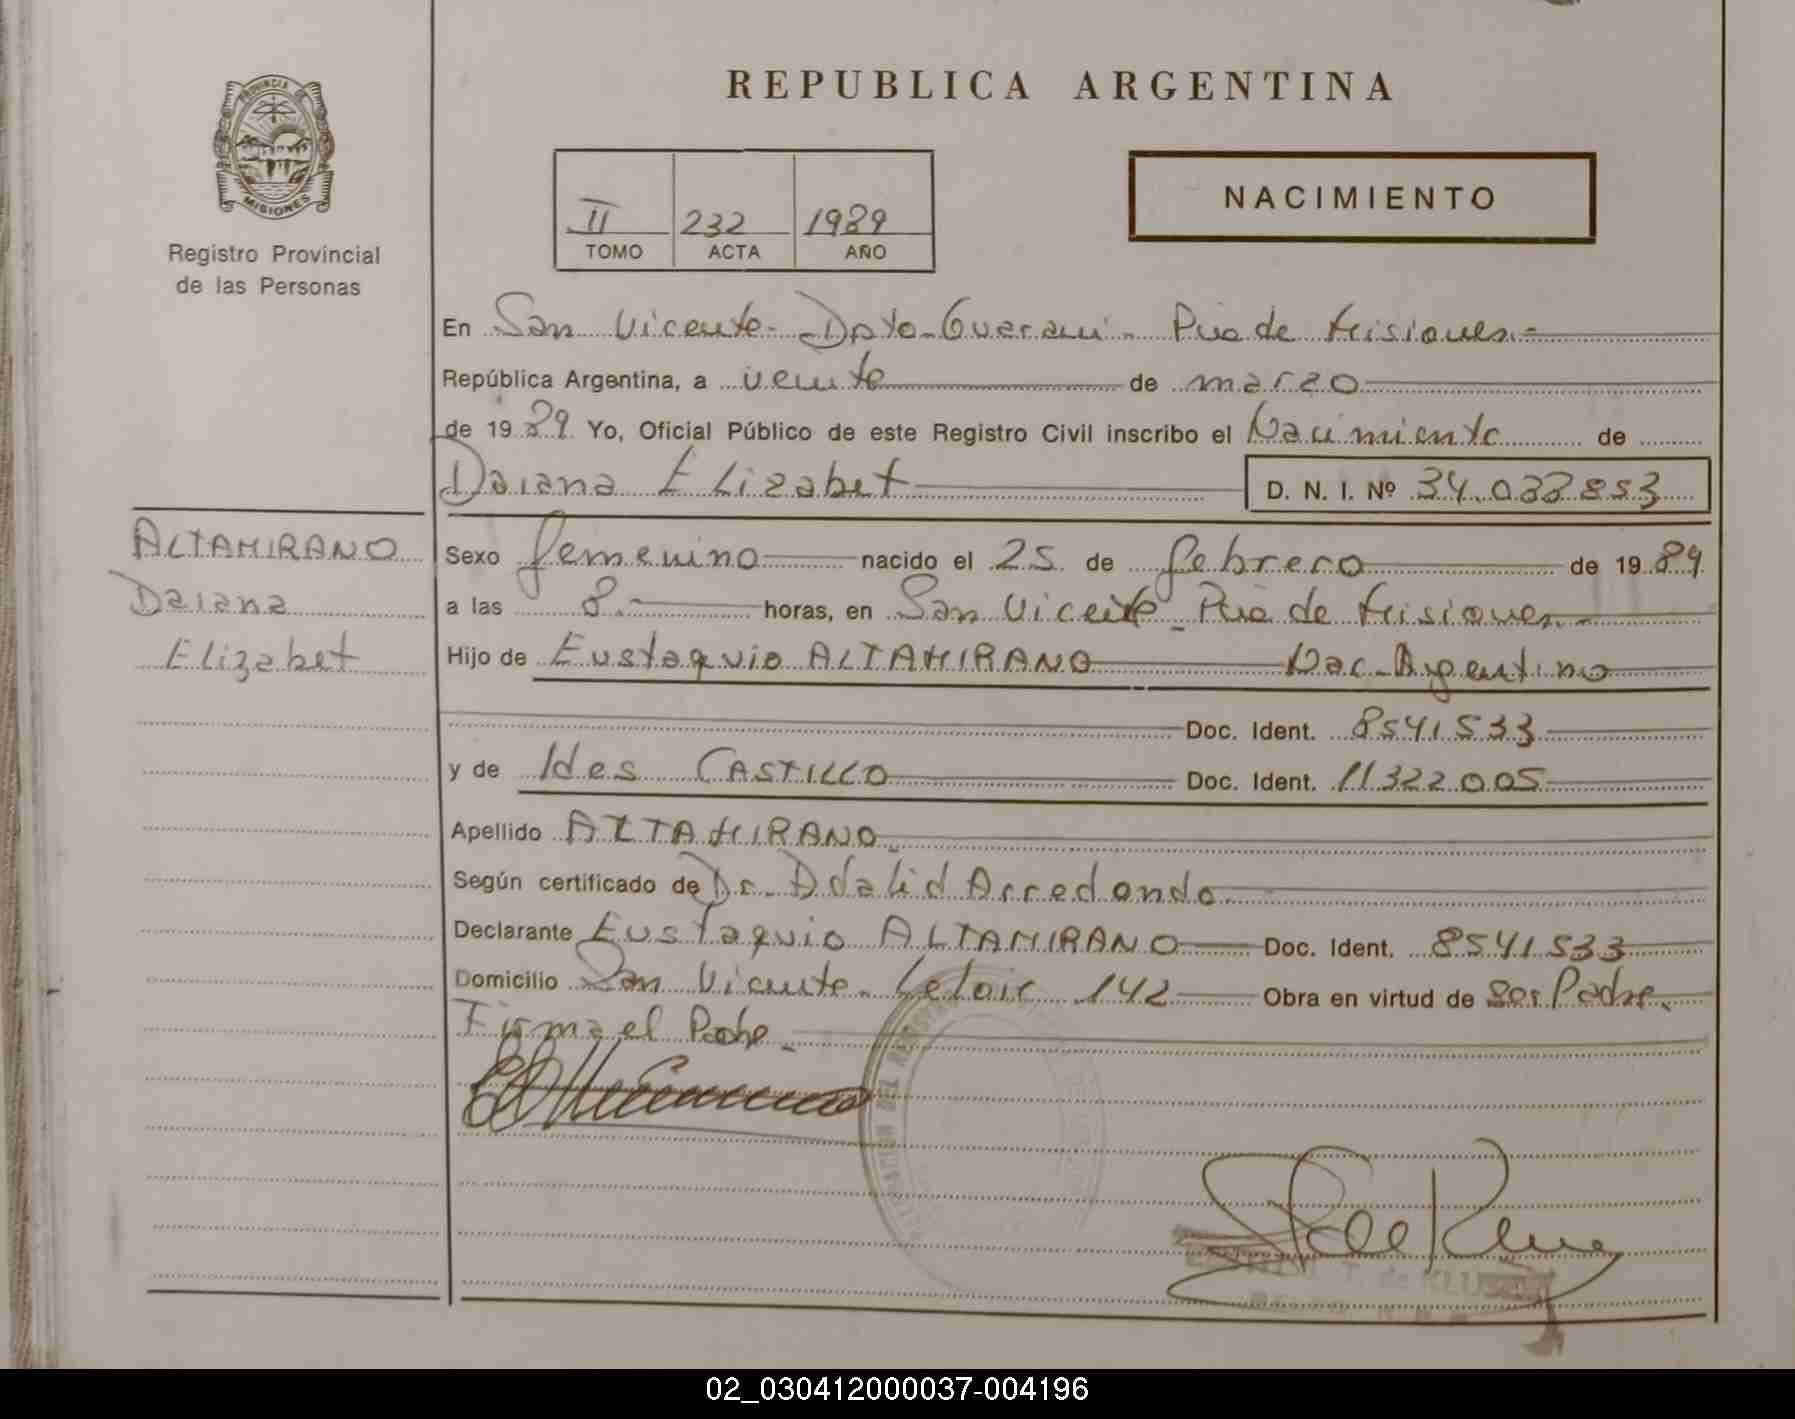 REPUBLICA ARGENTINA
PROVINCIA DE
MISIONES
Registro Provincial
de las Personas
II 232 1989
TOMO ACTA AÑO
NACIMIENTO
En San Vicente - Dpto - Guaraní - Pcia de Misiones.-
República Argentina, a veinte de marzo
de 1989 Yo, Oficial Público de este Registro Civil inscribo el Nacimiento de
Daiana Elizabet D. N. I. Nº 34.038.853
ALTAMIRANO
Daiana
Elizabet
Sexo femenino nacido el 25 de febrero de 1989
a las 8.- horas, en San Vicente - Pcia de Misiones.-
Hijo de Eustaquio ALTAMIRANO Nac. Argentino
Doc. Ident. 8541533
y de Ides CASTILLO Doc. Ident. 11322005
Apellido ALTAMIRANO.
Según certificado de Dr. Adalid Arredondo.
Declarante Eustaquio ALTAMIRANO Doc. Ident. 8541533
Domicilio San Vicente - Leloir 142 Obra en virtud de ser Padre.
Firma el Padre.-
DEL REGISTRO
T. de KLUSENER
02_030412000037-004196